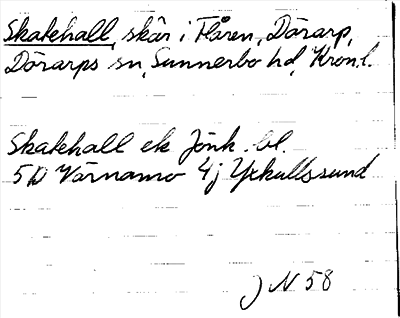 Skatehall, skär i Flåren, Dörarp,
Dörarps sn, Sunnerbo hd, Kron.l.
Skatehall ek Jönk. bl.
5D Värnamo 4j Yxkullssund
J N 58